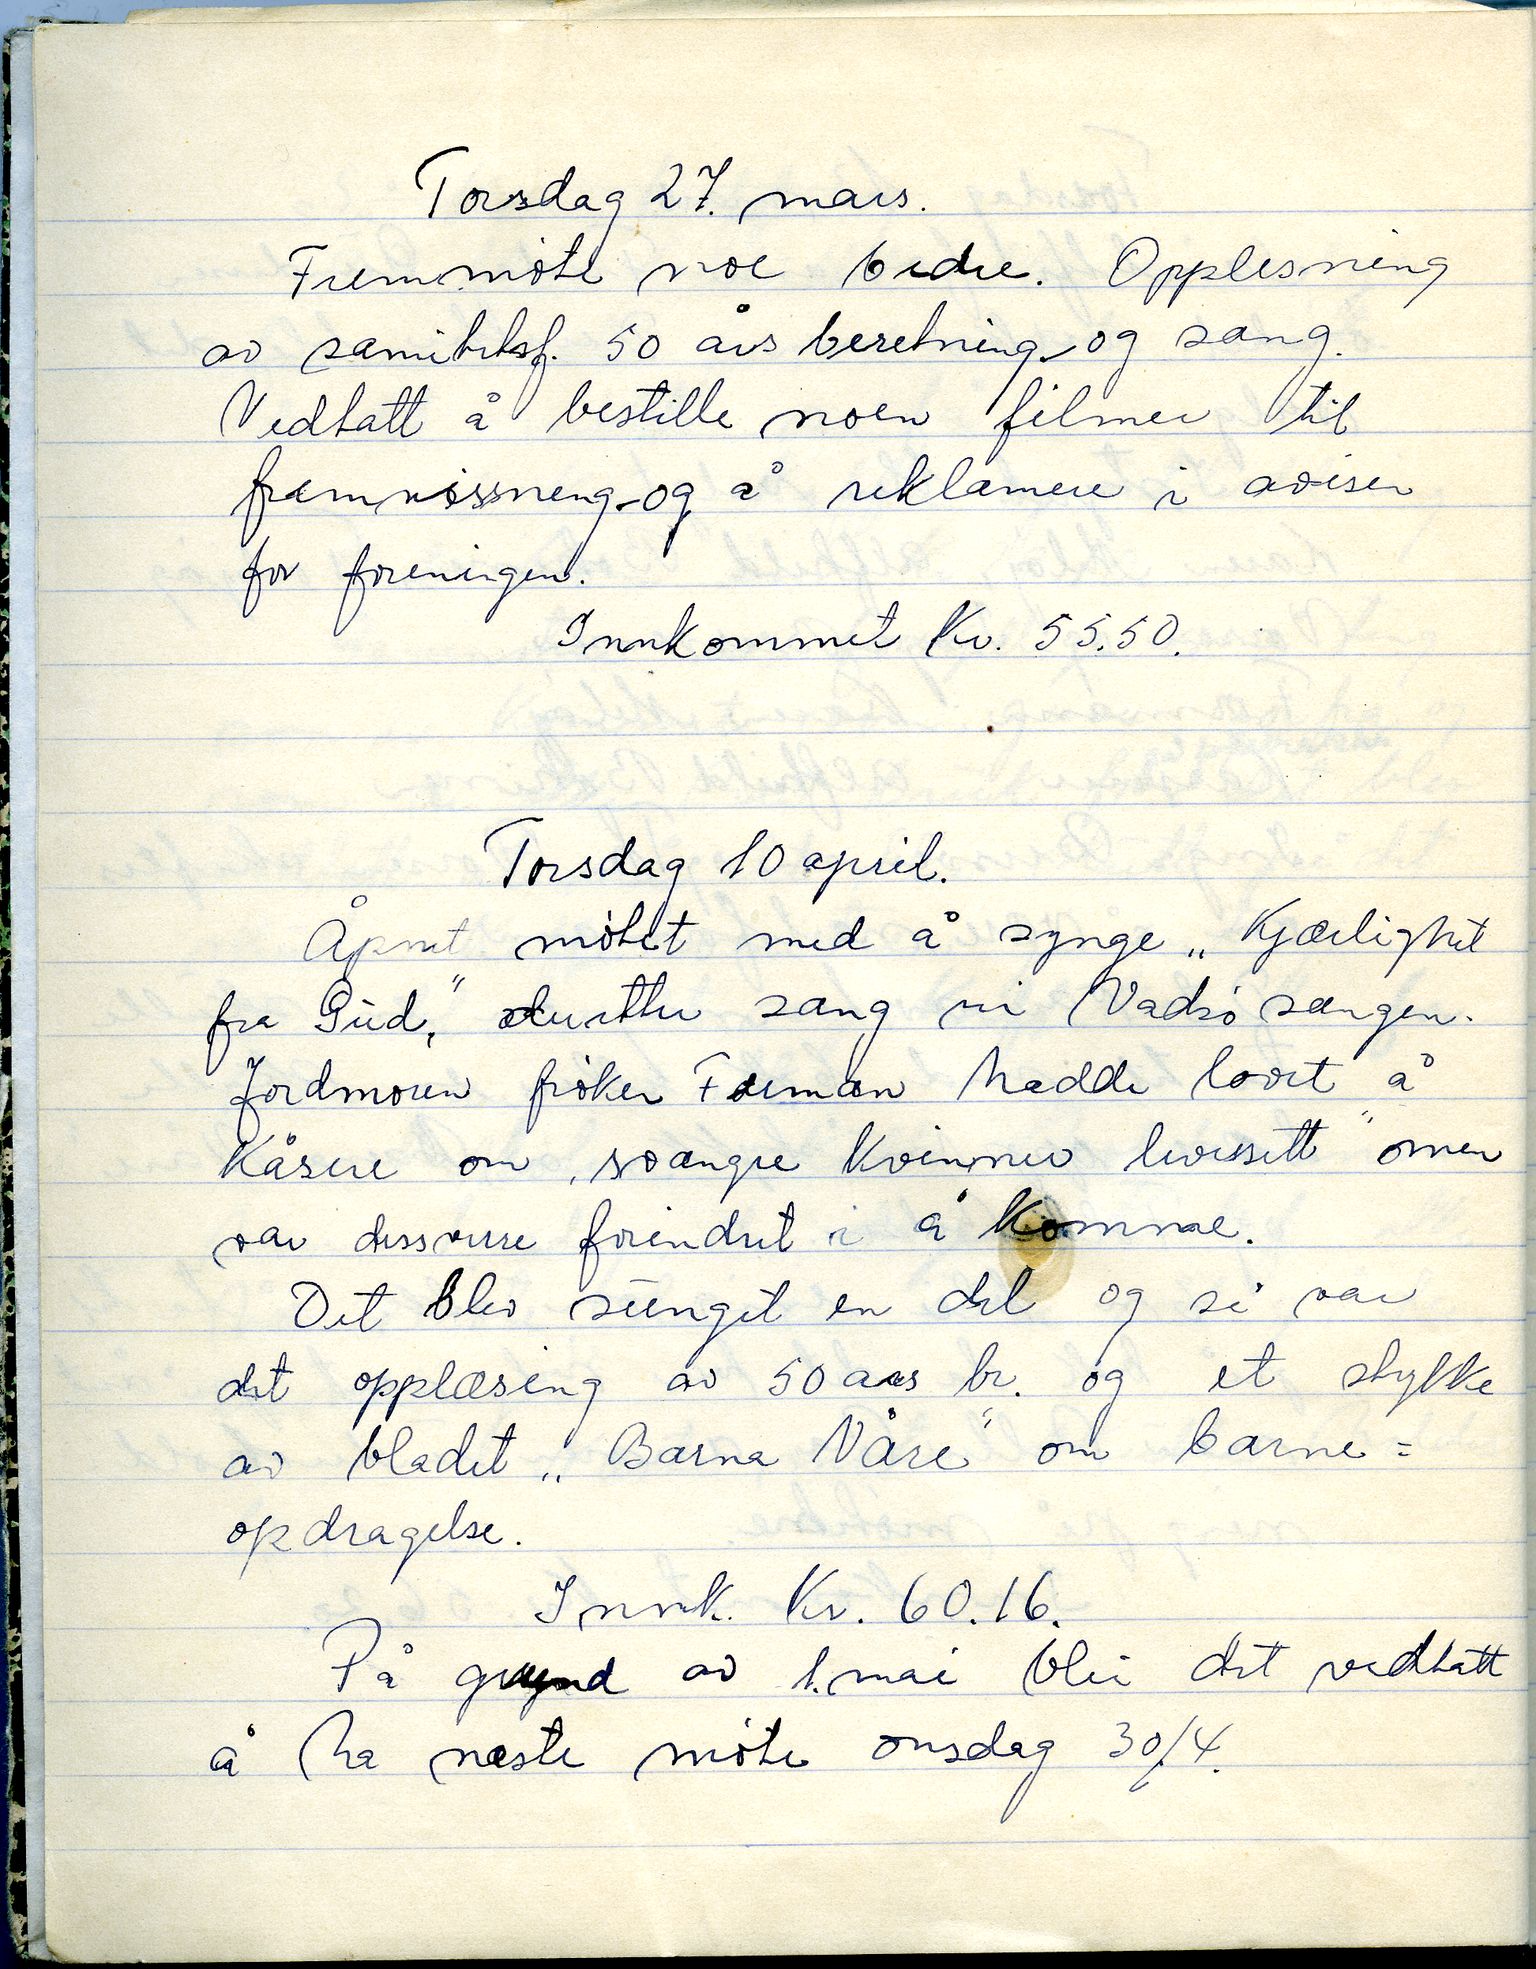 Torsdag 27. mars.
Fremmöte noe bedre. Opplesning
av sanitetsf. 50 års beretning og sang.
Vedtatt å bestille noen filmer til
framvissneng og å reklamere i avisen
for foreningen.
Innkommet Kr. 55.50.
Torsdag 10 april.
Åpnet mötet med å synge „Kjærlighet
fra Gud," deretter sang vi Vadsösangen.
Jordmoren fröken Forman hadde lovet å
kåsere om „svangre kvinner levesett" men
var dessverre forindret i å komme.
Det blev sunget en del og så var
det opplæsing av 50 aars br. og et stykke
av bladet „Barna Våre" om barne=
opdragelse.
Innk. Kr. 60.16.
På grund av 1. mai blei det vedtatt
å ha næste möte onsdag 30/4.